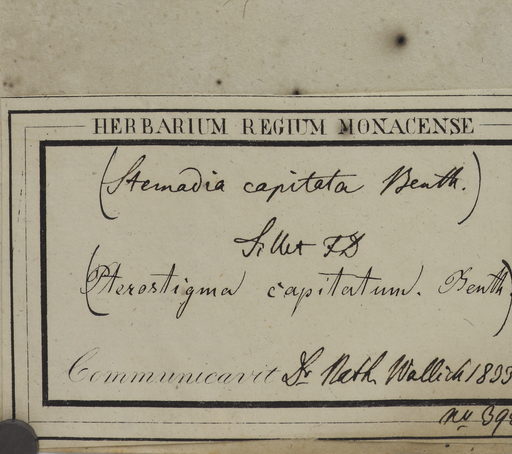 HERBARIUM REGIUM MONACENSE
(Stemadia capitata Benth.)
Sillet FD
(Pterostigma capitatum. Benth)
Communicavit Dr. Nath. Wallich 1833